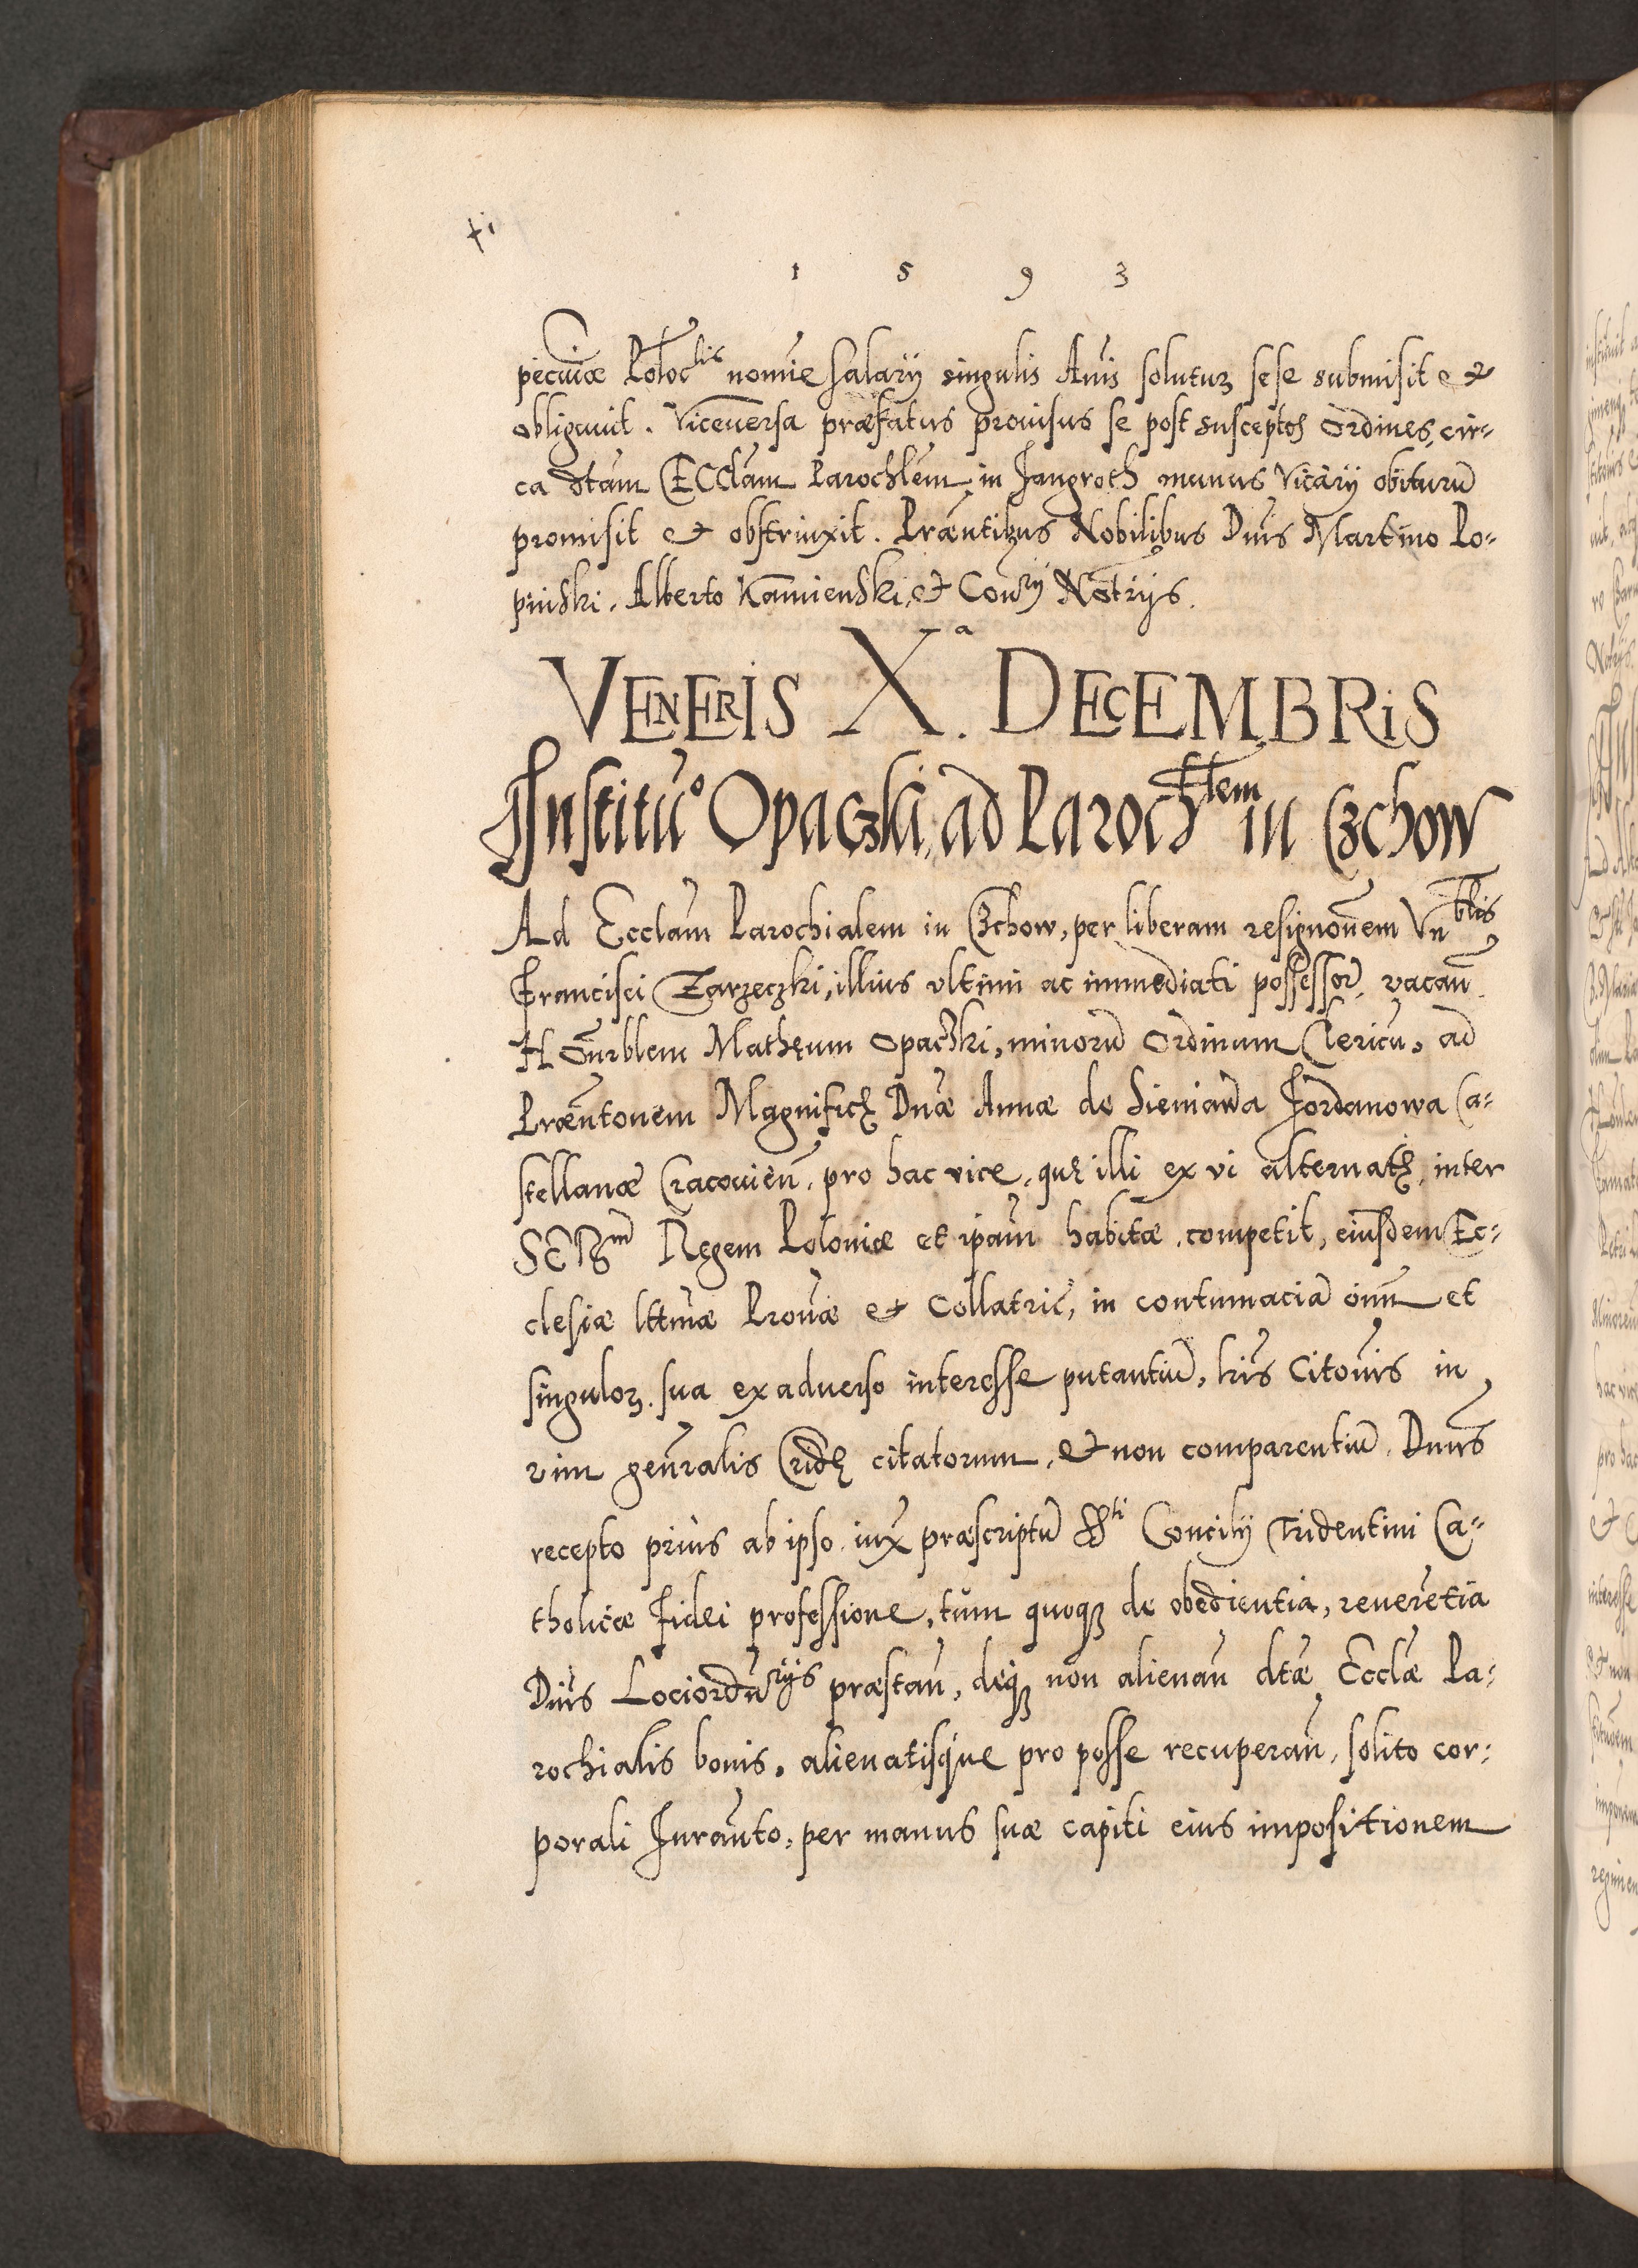 1 5 9 3
pecuniæ Poloclis nomie salarÿ singulis Anis soluturz sese submisit et
obligauit. Viceuersa præfatus prouisus se post susceptos Ordines, cir=
ca dtam ECClam Parochlem in Jangroth munus Vicarÿ obiturũ
promisit et obstrinxit. Præntibus Nobilibus Dnis Martino Lo=
pinski, Alberto Kamienski, et Conrÿ Notrijs.
VENERIS Xª. DECEMBRIS
Institutº Opaczki, ad Parochlem in Czchow
Ad Ecclam Parochialem in Czchow, per liberam resignonem Vnblis
Francisci Zarzeczki, illius vltimi ac immediati possessor, vacan
Honrblem Mathęum Opaczki, minorũ Ordinum Clericũ, ad
Præntonem Magnificę Dnæ Annæ de Sieniawa Jordanowa Ca=
stellanæ Cracouien, pro hac vice, quę illi ex vi alternatę, inter
SERm Regem Poloniæ et ipam habitæ, competit, eiusdem Ec=
clesiæ lttmæ Pronæ et Collatric, in contumaciã oim et
singulorz. sua ex aduerso interesse putantiũ, lris Citonis in
vim genralis Cridę citatorum, et non comparentiũ, Dnus
recepto prius ab ipso iux præscriptũ SSti Concilÿ Tridentini Ca=
tholicæ Fidei professione, tum quoqz de obedientia, reuerẽtia
Dnis Lociordnrijs præstan, deqz non alienan dtæ Ecclæ Pa=
rochialis bonis, alienatisque pro posse recuperan, solito cor=
porali Juranto, per manus suæ capiti eius impositionem